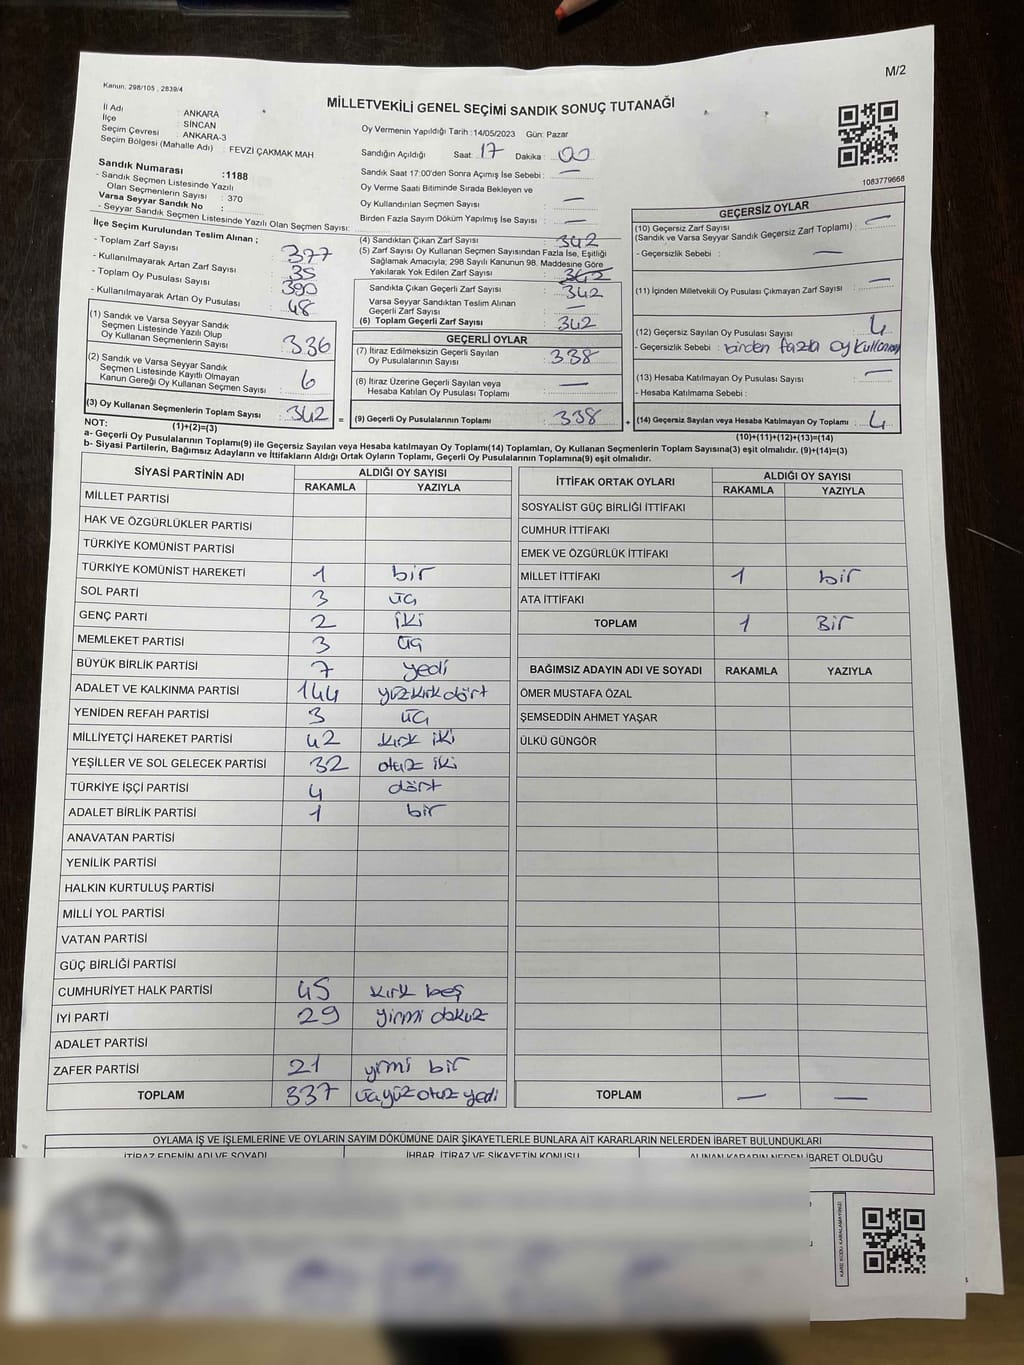 M/2
Kanun: 298/105 , 2839/4
MİLLETVEKİLİ GENEL SEÇİMİ SANDIK SONUÇ TUTANAĞI
İl Adı : ANKARA
İlçe : SİNCAN
Seçim Çevresi : ANKARA-3
Seçim Bölgesi (Mahalle Adı) : FEVZİ ÇAKMAK MAH
Sandık Numarası :1188
- Sandık Seçmen Listesinde Yazılı
Olan Seçmenlerin Sayısı : 370
Varsa Seyyar Sandık No :
- Seyyar Sandık Seçmen Listesinde Yazılı Olan Seçmen Sayısı:
Oy Vermenin Yapıldığı Tarih :14/05/2023 Gün: Pazar
Sandığın Açıldığı Saat: 17 Dakika: 00
Sandık Saat 17:00'den Sonra Açımış İse Sebebi : —
Oy Verme Saati Bitiminde Sırada Bekleyen ve
Oy Kullandırılan Seçmen Sayısı : —
Birden Fazla Sayım Döküm Yapılmış İse Sayısı : —
1083779668
İlçe Seçim Kurulundan Teslim Alınan ;
- Toplam Zarf Sayısı : 377
- Kullanılmayarak Artan Zarf Sayısı : 35
- Toplam Oy Pusulası Sayısı : 390
- Kullanılmayarak Artan Oy Pusulası : 48
(1) Sandık ve Varsa Seyyar Sandık
Seçmen Listesinde Yazılı Olup
Oy Kullanan Seçmenlerin Sayısı : 336
(2) Sandık ve Varsa Seyyar Sandık
Seçmen Listesinde Kayıtlı Olmayan
Kanun Gereği Oy Kullanan Seçmen Sayısı : 6
(3) Oy Kullanan Seçmenlerin Toplam Sayısı : 342
(1)+(2)=(3)
(4) Sandıktan Çıkan Zarf Sayısı : 342
(5) Zarf Sayısı Oy Kullanan Seçmen Sayısından Fazla İse, Eşitliği
Sağlamak Amacıyla; 298 Sayılı Kanunun 98. Maddesine Göre
Yakılarak Yok Edilen Zarf Sayısı : 342
Sandıkta Çıkan Geçerli Zarf Sayısı : 342
Varsa Seyyar Sandıktan Teslim Alınan
Geçerli Zarf Sayısı : —
(6) Toplam Geçerli Zarf Sayısı : 342
GEÇERLİ OYLAR
(7) İtiraz Edilmeksizin Geçerli Sayılan
Oy Pusulalarının Sayısı : 338
(8) İtiraz Üzerine Geçerli Sayılan veya
Hesaba Katılan Oy Pusulaları Toplamı : —
= (9) Geçerli Oy Pusulalarının Toplamı : 338
GEÇERSİZ OYLAR
(10) Geçersiz Zarf Sayısı
(Sandık ve Varsa Seyyar Sandık Geçersiz Zarf Toplamı) : —
- Geçersizlik Sebebi : —
(11) İçinden Milletvekili Oy Pusulası Çıkmayan Zarf Sayısı : —
(12) Geçersiz Sayılan Oy Pusulası Sayısı : 4
- Geçersizlik Sebebi : birden fazla oy kullanma
(13) Hesaba Katılmayan Oy Pusulası Sayısı : —
- Hesaba Katılmama Sebebi :
+ (14) Geçersiz Sayılan veya Hesaba Katılmayan Oy Toplamı : 4
(10)+(11)+(12)+(13)=(14)
NOT:
a- Geçerli Oy Pusulalarının Toplamı(9) ile Geçersiz Sayılan veya Hesaba katılmayan Oy Toplamı(14) Toplamları, Oy Kullanan Seçmenlerin Toplam Sayısına(3) eşit olmalıdır. (9)+(14)=(3)
b- Siyasi Partilerin, Bağımsız Adayların ve İttifakların Aldığı Ortak Oyların Toplamı, Geçerli Oy Pusulalarının Toplamına(9) eşit olmalıdır.
SİYASİ PARTİNİN ADI ALDIĞI OY SAYISI
RAKAMLA YAZIYLA
MİLLET PARTİSİ
HAK VE ÖZGÜRLÜKLER PARTİSİ
TÜRKİYE KOMÜNİST PARTİSİ
TÜRKİYE KOMÜNİST HAREKETİ 1 bir
SOL PARTİ 3 üç
GENÇ PARTİ 2 iki
MEMLEKET PARTİSİ 3 üç
BÜYÜK BİRLİK PARTİSİ 7 yedi
ADALET VE KALKINMA PARTİSİ 144 yüzkırkdört
YENİDEN REFAH PARTİSİ 3 üç
MİLLİYETÇİ HAREKET PARTİSİ 42 kırk iki
YEŞİLLER VE SOL GELECEK PARTİSİ 32 otuz iki
TÜRKİYE İŞÇİ PARTİSİ 4 dört
ADALET BİRLİK PARTİSİ 1 bir
ANAVATAN PARTİSİ
YENİLİK PARTİSİ
HALKIN KURTULUŞ PARTİSİ
MİLLİ YOL PARTİSİ
VATAN PARTİSİ
GÜÇ BİRLİĞİ PARTİSİ
CUMHURİYET HALK PARTİSİ 45 kırk beş
İYİ PARTİ 29 yirmi dokuz
ADALET PARTİSİ
ZAFER PARTİSİ 21 yirmi bir
TOPLAM 337 üçyüz otuz yedi
İTTİFAK ORTAK OYLARI ALDIĞI OY SAYISI
RAKAMLA YAZIYLA
SOSYALİST GÜÇ BİRLİĞİ İTTİFAKI
CUMHUR İTTİFAKI
EMEK VE ÖZGÜRLÜK İTTİFAKI
MİLLET İTTİFAKI 1 bir
ATA İTTİFAKI
TOPLAM 1 Bir
BAĞIMSIZ ADAYIN ADI VE SOYADI RAKAMLA YAZIYLA
ÖMER MUSTAFA ÖZAL
ŞEMSEDDİN AHMET YAŞAR
ÜLKÜ GÜNGÖR
TOPLAM — —
OYLAMA İŞ VE İŞLEMLERİNE VE OYLARIN SAYIM DÖKÜMÜNE DAİR ŞİKAYETLERLE BUNLARA AİT KARARLARIN NELERDEN İBARET BULUNDUKLARI
İTİRAZ EDENİN ADI VE SOYADI İHBAR, İTİRAZ VE ŞİKAYETİN KONUSU ALINAN KARARIN NEDEN İBARET OLDUĞU